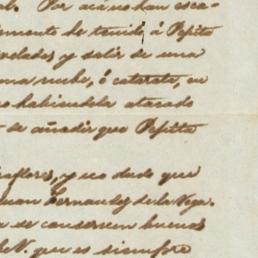 al. Por acá no han esca-
mente he tenido á Pepita
velados, y salir de una
una nube, ó catarata, en
no habiendola atacado
de añadir que Pepita
raflores, y no dudo que
Juan Fernandez de la Vega.
de conserven buenos
de V. que es siempre